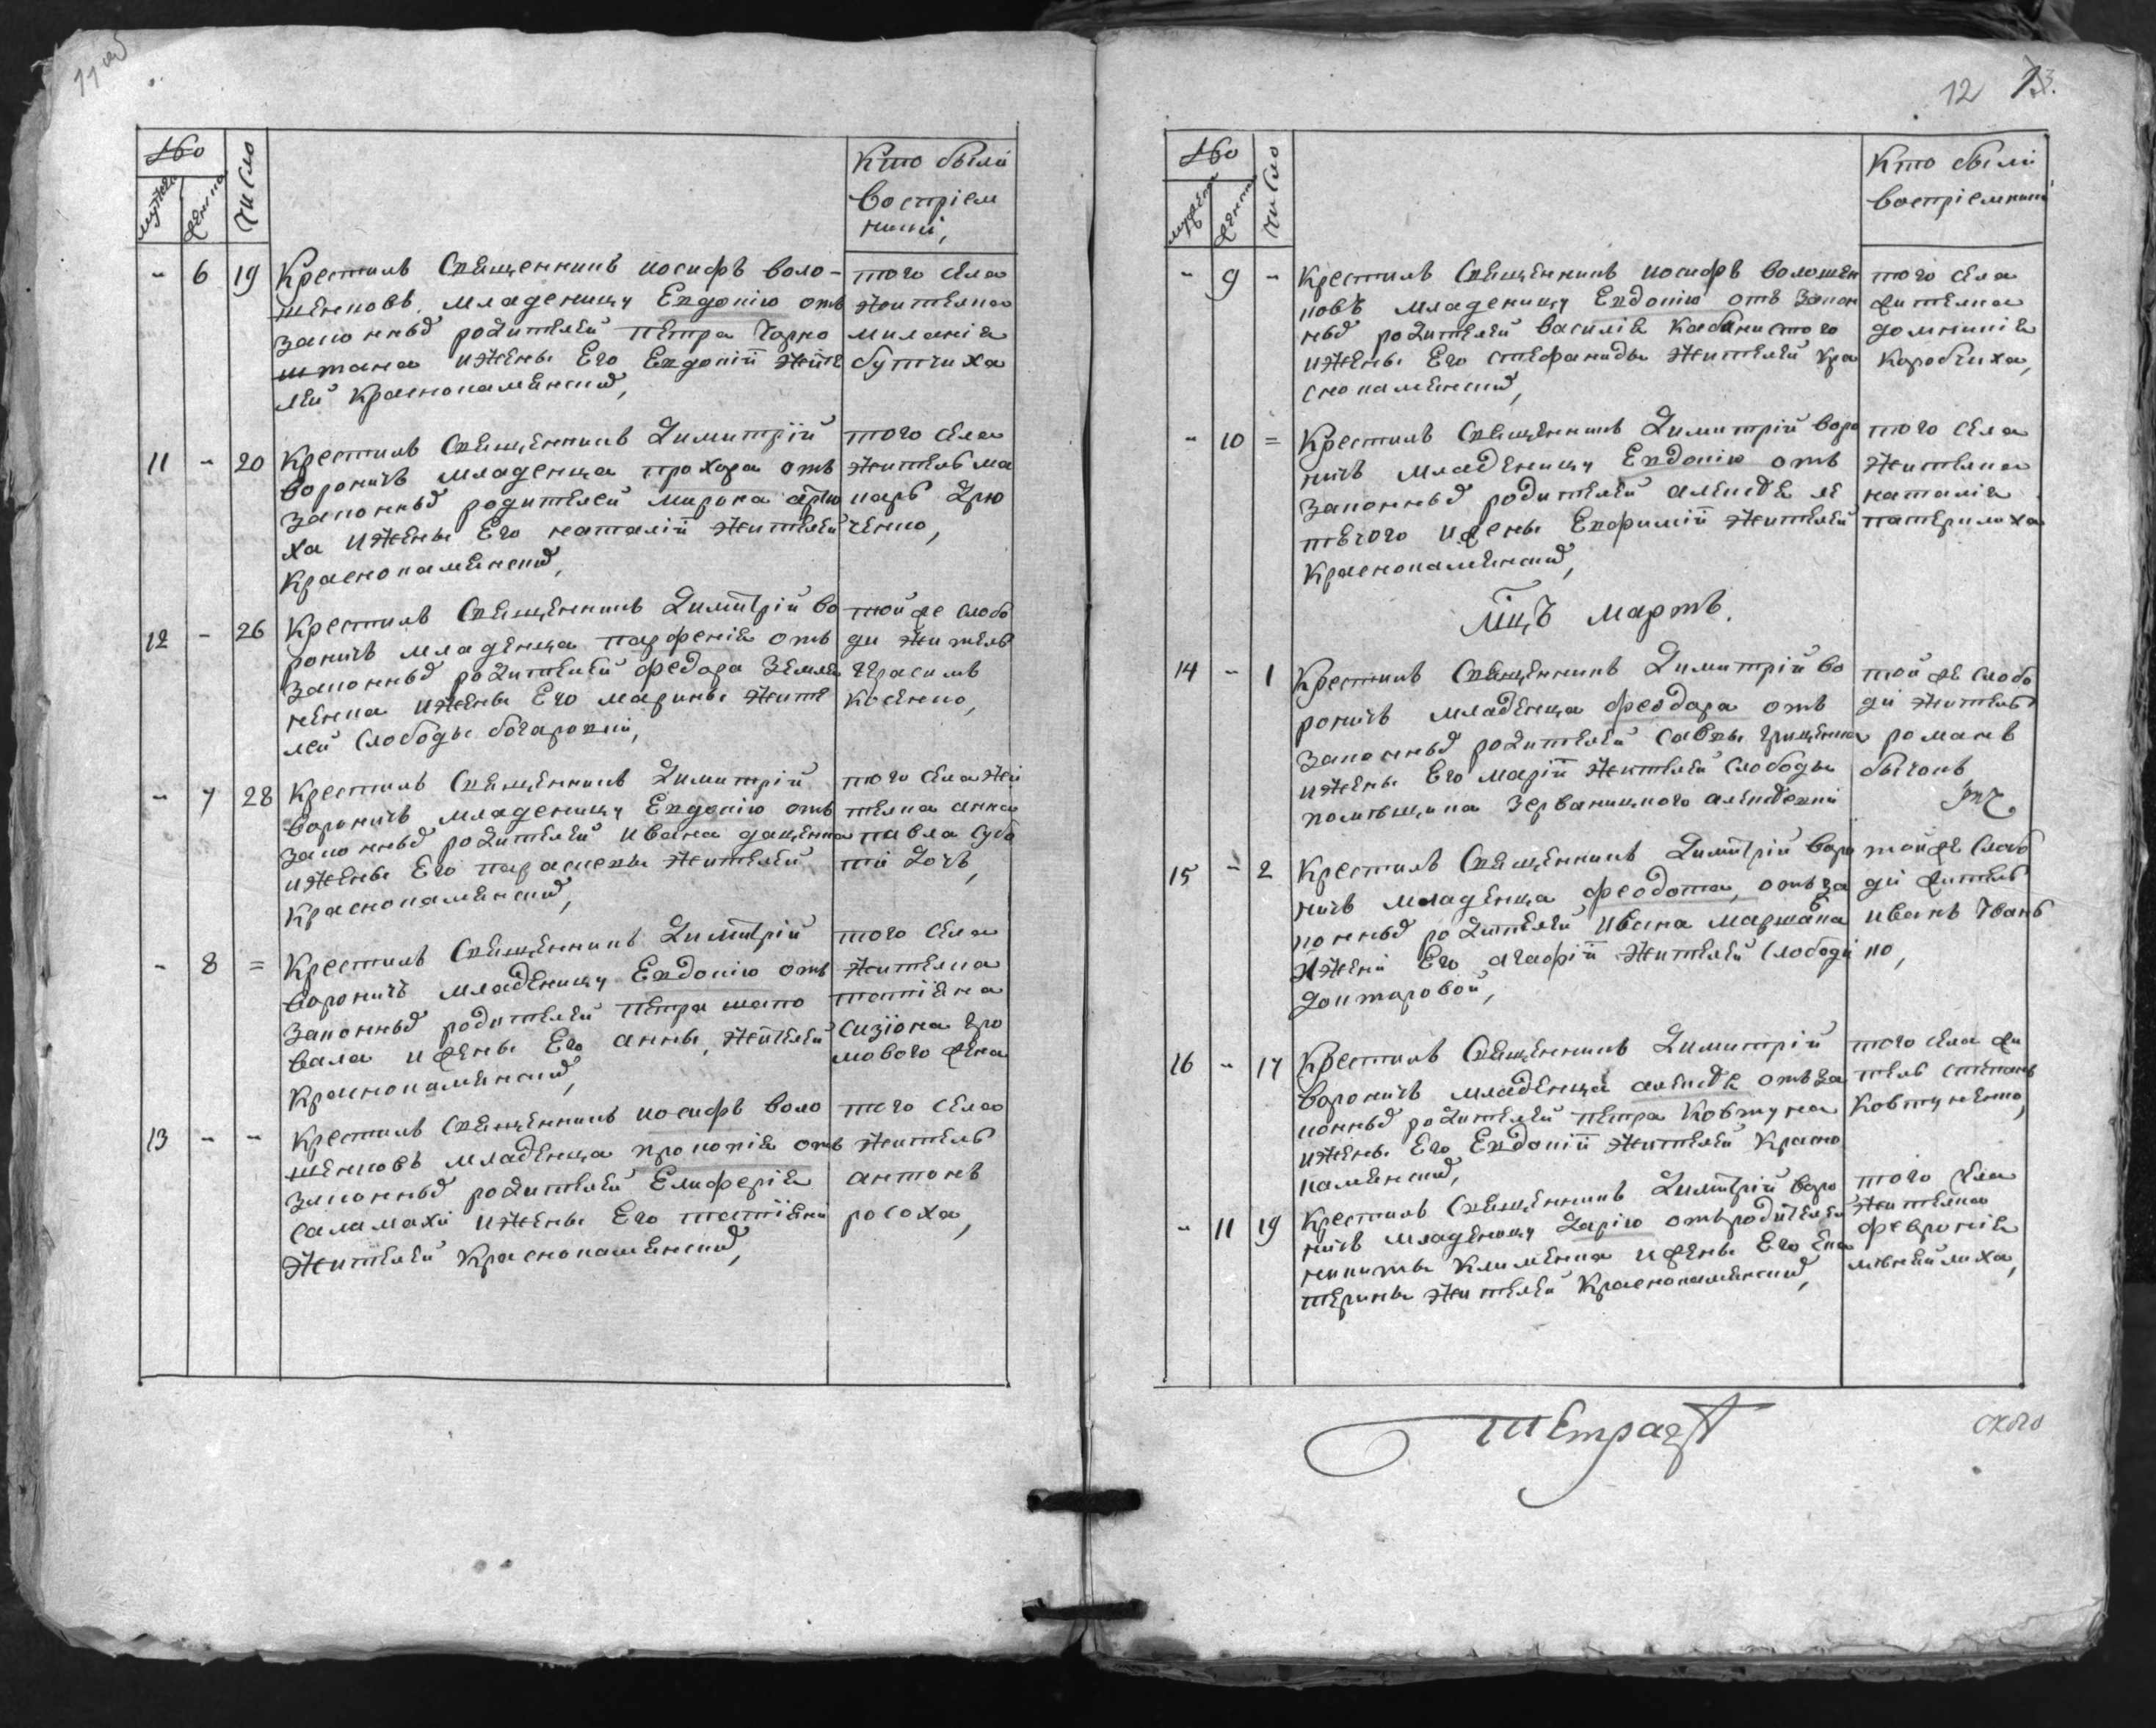 11 об
№
мужска
женска
число
Кто были
воспріем
ники,
- 6 19 Крестилъ Священникъ иосифъ воло-
шеновъ младеницу Евдокію отъ
законныхъ родителей петра Чорно
штана ижены Его Евдокіи жите
лей краснокаменскихъ,
того села
жителка
миланія
бутчиха
11 - 20 Крестилъ Священникъ Димитрій
вороничъ младенца прохора отъ
законныхъ родителей мирона дрю
ха ижены Его наталіи жителей
краснокаменскихъ,
того села
житель ма
каръ Дрю
ченко,
12 - 26 Крестилъ Священникъ Димитрій во
роничъ младенца парфенія отъ
законныхъ родителей федора Землян
ченка ижены Его марины жите
лей слободы богаровки,
той же слобо
ди житель
Герасимъ
косенко,
- 7 28 Крестилъ Священникъ Димитрій
вороничъ младеницу Евдокію отъ
законныхъ родителей ивана даценка
ижены Его параскевы жителей
краснокаменскихъ,
того села жи
телка анна
павла субо
ти дочь,
- 8 = Крестилъ Священникъ Димитрій
вороничъ младеницу Евдокію отъ
законныхъ родителей петра шапо
вала ижены Его анны, жителей
краснокаменскихъ,
того села
жителка
татіяна
сизіона гро
мового жена
13 - - Крестилъ Священникъ иосифъ воло
шеновъ младенца прокопія отъ
законныхъ родителей Елиферія
саламахи ижены Его татіяни
жителей краснокаменскихъ,
того села
житель
антонъ
росоха,
12 13.
№
мужеска
женска
число
Кто были
воспріемники
- 9 - крестилъ Священникъ иосифъ волошен
новъ младеницу Евдокію отъ закон
ныхъ родителей василія кабанистого
ижены Его стефаниды жителей кра
снокаменскихъ,
того села
жителка
домникія
коробчиха,
- 10 = Крестилъ Священникъ Димитрій воро
ничъ младеницу Евдокію отъ
законныхъ родителей алексѣя ле
пѣхого ижены Евфиміи жителей
краснокаменскихъ,
того села
жителка
наталія
патерилиха
Мцъ мартъ.
14 - 1 Крестилъ Священникъ Димитрій во
роничъ младенца феодора отъ
законныхъ родителей савы грищенка
ижены Его маріи жителей слободы
помѣщика Зерваницкого алексѣевки
той же слобо
ди житель
романъ
бычокъ
15 - 2 Крестилъ Священникъ Димитрій воро
ничъ младенца феодота, отъ за
конныхъ родителей ивана маршака
ижени Его агафіи жителей слободи
доктаровой,
той же слобо
ди житель
иванъ Иванъ
ко,
16 - 17 Крестилъ Священникъ Димитрій
вороничъ младенца алексѣя отъ за
конныхъ родителей петра ковтуна
ижены Его Евдокіи жителей красно
каменскихъ,
того села жи
тель степанъ
ковтуненко,
- 11 19 Крестилъ Священникъ Димитрій воро
ничъ младеницу Дарію отъ родителей
никиты клименка ижены Его Ека
терины жителей краснокаменскихъ,
того села
жителка
февронія